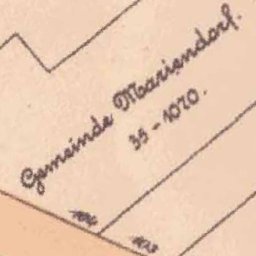 Gemeinde Mariendorf.
35 - 1020.